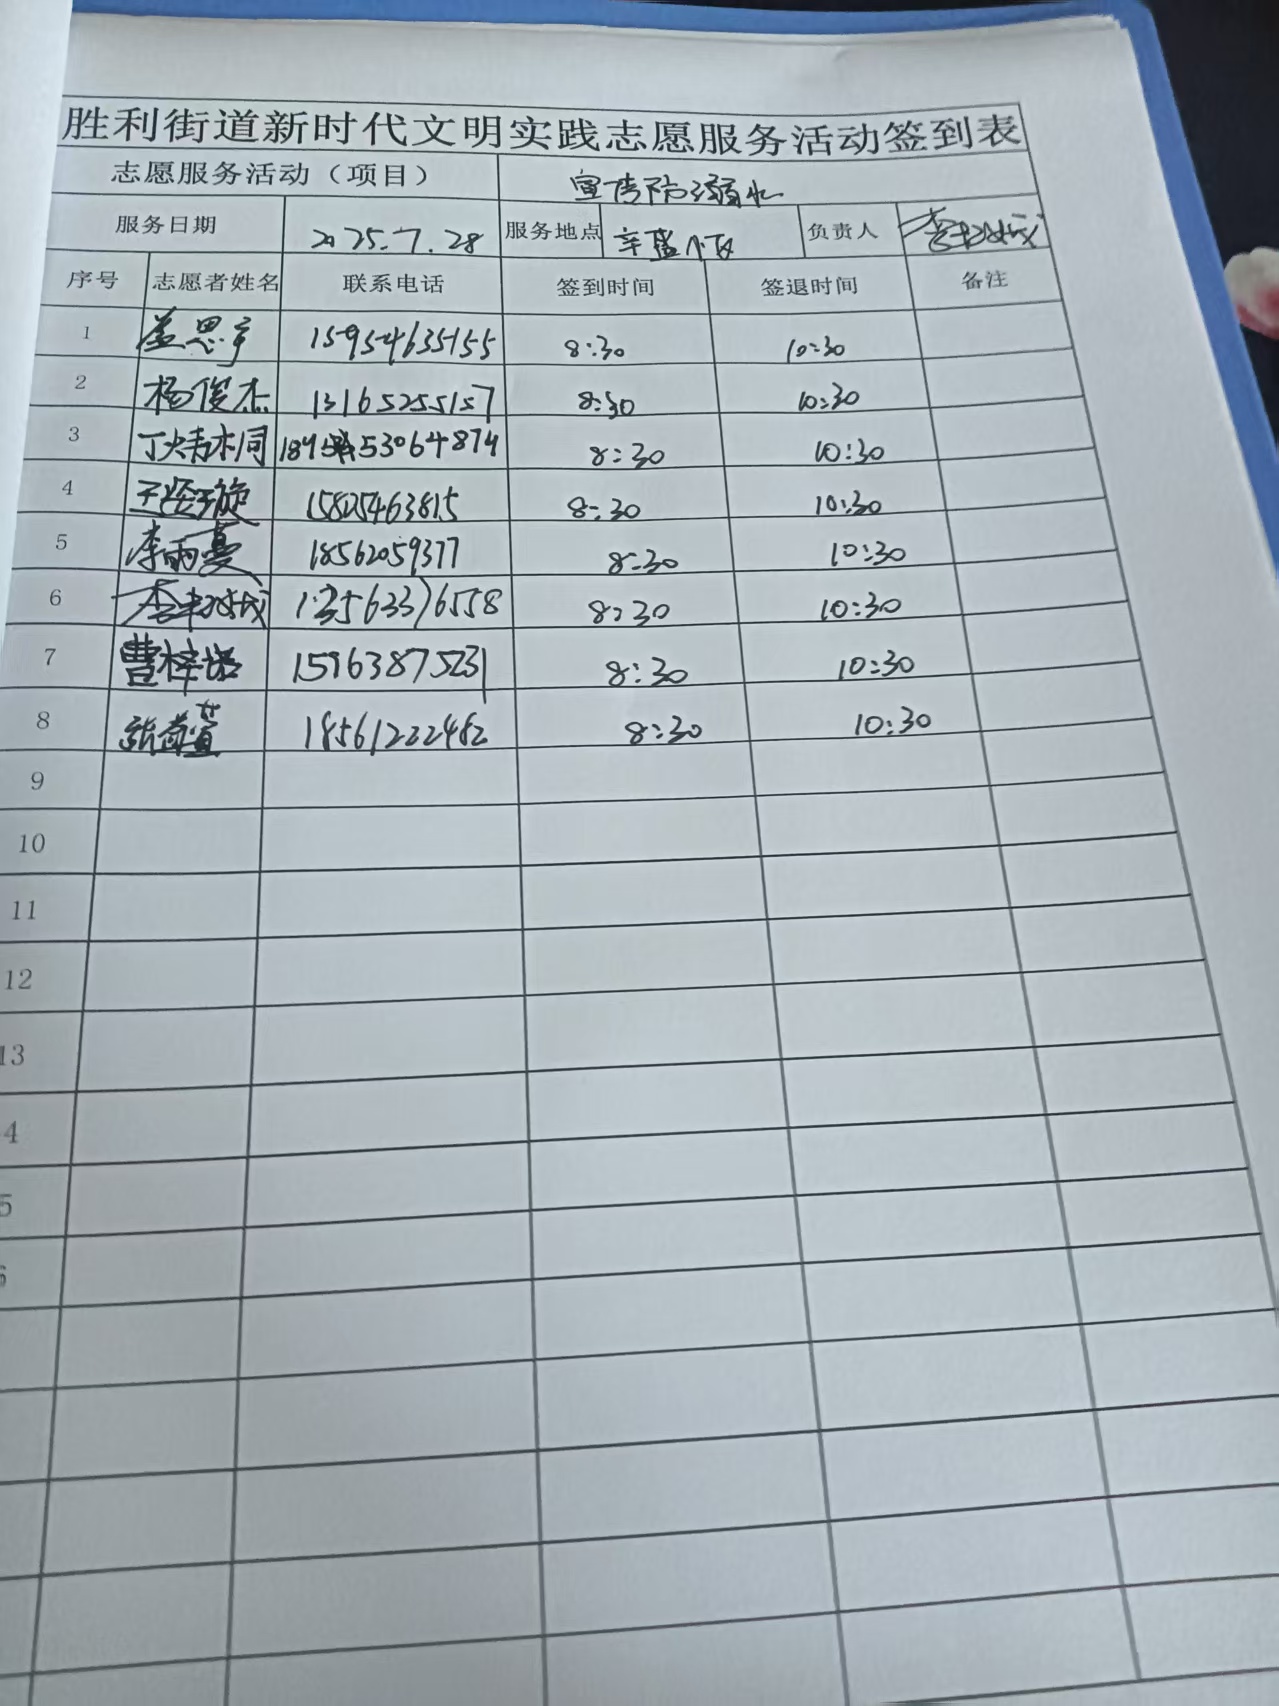 胜利街道新时代文明实践志愿服务活动签到表
志愿服务活动（项目） 宣传防溺水
服务日期 2025.7.28 服务地点 辛盛小区 负责人
序号 志愿者姓名 联系电话 签到时间 签退时间 备注
1 盖思宇 15954635155 8:30 10:30
2 杨俊杰 13165255157 8:30 10:30
3 53064874 8:30 10:30
4 15825463815 8:30 10:30
5 李雨蔓 18562059377 8:30 10:30
6 8:30 10:30
7 曹梓 15963875231 8:30 10:30
8 张 18561222482 8:30 10:30
9
10
11
12
13
4
5
6